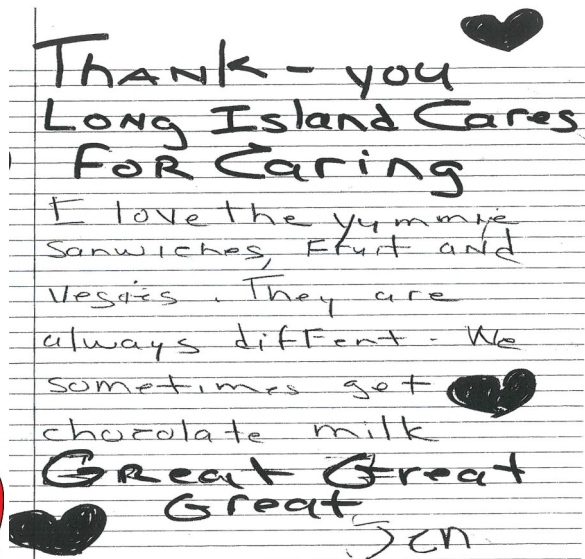 Thank-you
Long Island Cares
For Caring
I love the yummie
sanwiches, Fruit and
Veggies. They are
always diffent. We
sometimes get
chocolate milk
Great Great
Great
Jen